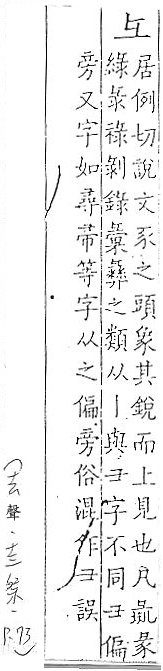 彑
居例切說文豕之頭象其銳而上見也凡彘彖
綠彔祿剝錄彙彝之類从丨與彐字不同彐偏
旁又字如尋帚等字从之偏旁俗混作彐誤
(去聲·十三祭·P.73)